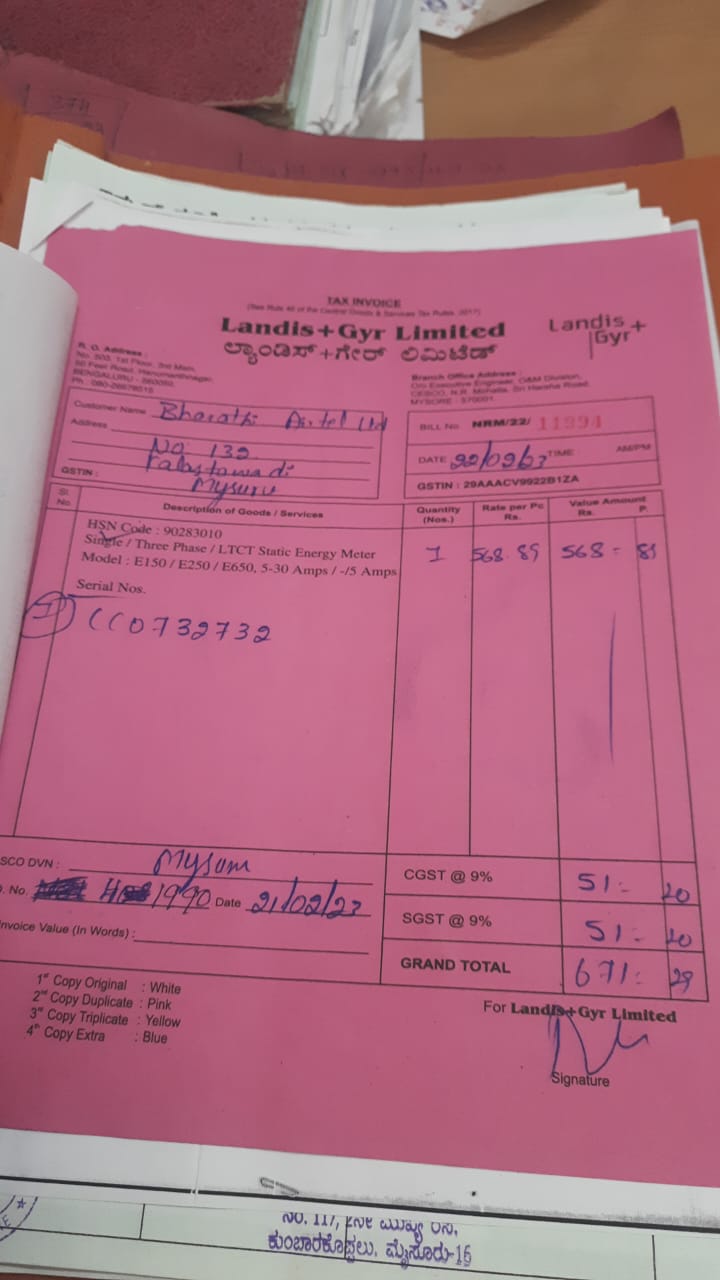 TAX INVOICE
(See Rule 46 of the Central Goods & Services Tax Rules, 2017)
Landis+Gyr Limited
ಲ್ಯಾಂಡಿಸ್+ಗೇರ್ ಲಿಮಿಟೆಡ್
Landis+
Gyr
R. O. Address :
No. 503, 1st Floor, 3rd Main,
Hanumanthnagar,
BENGALURU - 560050.
Branch Office Address :
C/o Executive Engineer, O&M Division,
CESCO, N.R. Mohalla, Sri Harsha Road,
MYSORE - 570001
Customer Name Bharathi Airtel Ltd
Address
No: 132
Mysuru
GSTIN :
BILL No NRM/22/ 11994
DATE 22/02/23 TIME : AM/PM
GSTIN : 29AAACV9922B1ZA
Sl. No. Description of Goods / Services Quantity (Nos.) Rate per Pc Rs. Value Amount Rs. P.
HSN Code : 90283010
Single / Three Phase / LTCT Static Energy Meter 1 568.89 568=89
Model : E150 / E250 / E650, 5-30 Amps / -/5 Amps
Serial Nos.
CC0732732
SCO DVN : Mysuru
. No. 1990 Date 21/02/23
Invoice Value (In Words) :
CGST @ 9% 51= 20
SGST @ 9% 51= 20
GRAND TOTAL 671= 29
1st Copy Original : White
2nd Copy Duplicate : Pink
3rd Copy Triplicate : Yellow
4th Copy Extra : Blue
For Landis+Gyr Limited
Signature
ನಂ. 117, 2ನೇ ಮುಖ್ಯ ರಸ್ತೆ,
ಕುಂಬಾರಕೊಪ್ಪಲು, ಮೈಸೂರು-16